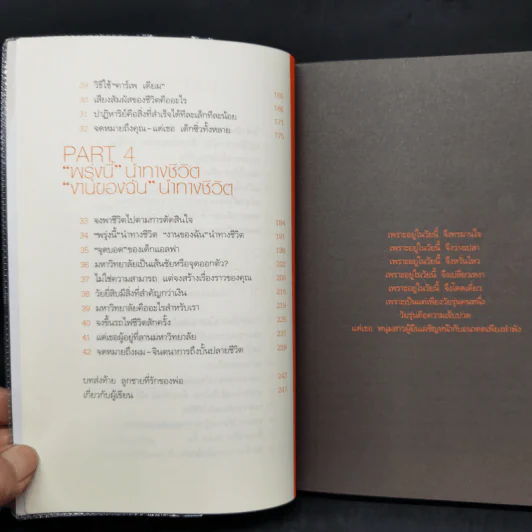 29 วิธีใช้ "คาร์เพ เดียม" 165
30 เสียงสัมผัสของชีวิตคืออะไร 168
31 ปาฏิหาริย์คือสิ่งที่สำเร็จได้ทีละเล็กทีละน้อย 171
32 จดหมายถึงคุณ – แด่เธอ เด็กซิ่วทั้งหลาย 175
PART 4
"พรุ่งนี้" นำทางชีวิต
"งานของฉัน" นำทางชีวิต
33 จงพาชีวิตไปตามการตัดสินใจ 184
34 "พรุ่งนี้" นำทางชีวิต "งานของฉัน" นำทางชีวิต 191
35 "จุดบอด" ของเด็กแอลฟา
36 มหาวิทยาลัยเป็นเส้นชัยหรือจุดออกตัว? 202
37 ไม่ใช่ความสามารถ แต่จงสร้างเรื่องราวของคุณ 208
38 วัยยี่สิบมีสิ่งที่สำคัญกว่าเงิน
39 มหาวิทยาลัยคืออะไรสำหรับเรา
40 จงขึ้นรถไฟชีวิตสักครั้ง
41 แด่เธอผู้อยู่ที่ลานมหาวิทยาลัย
42 จดหมายถึงผม – จินตนาการถึงบั้นปลายชีวิต
บทส่งท้าย ลูกชายที่รักของพ่อ 242
เกี่ยวกับผู้เขียน 247
เพราะอยู่ในวัยนี้ จึงทรมานใจ
เพราะอยู่ในวัยนี้ จึงว่างเปล่า
เพราะอยู่ในวัยนี้ จึงหวั่นไหว
เพราะอยู่ในวัยนี้ จึงเปลี่ยวเหงา
เพราะอยู่ในวัยนี้ จึงโดดเดี่ยว
เพราะเป็นแค่เพียงวัยรุ่นคนหนึ่ง
วัยรุ่นคือความเจ็บปวด
แด่เธอ หนุ่มสาวผู้ยืนเผชิญหน้ากับอนาคตเพียงลำพัง